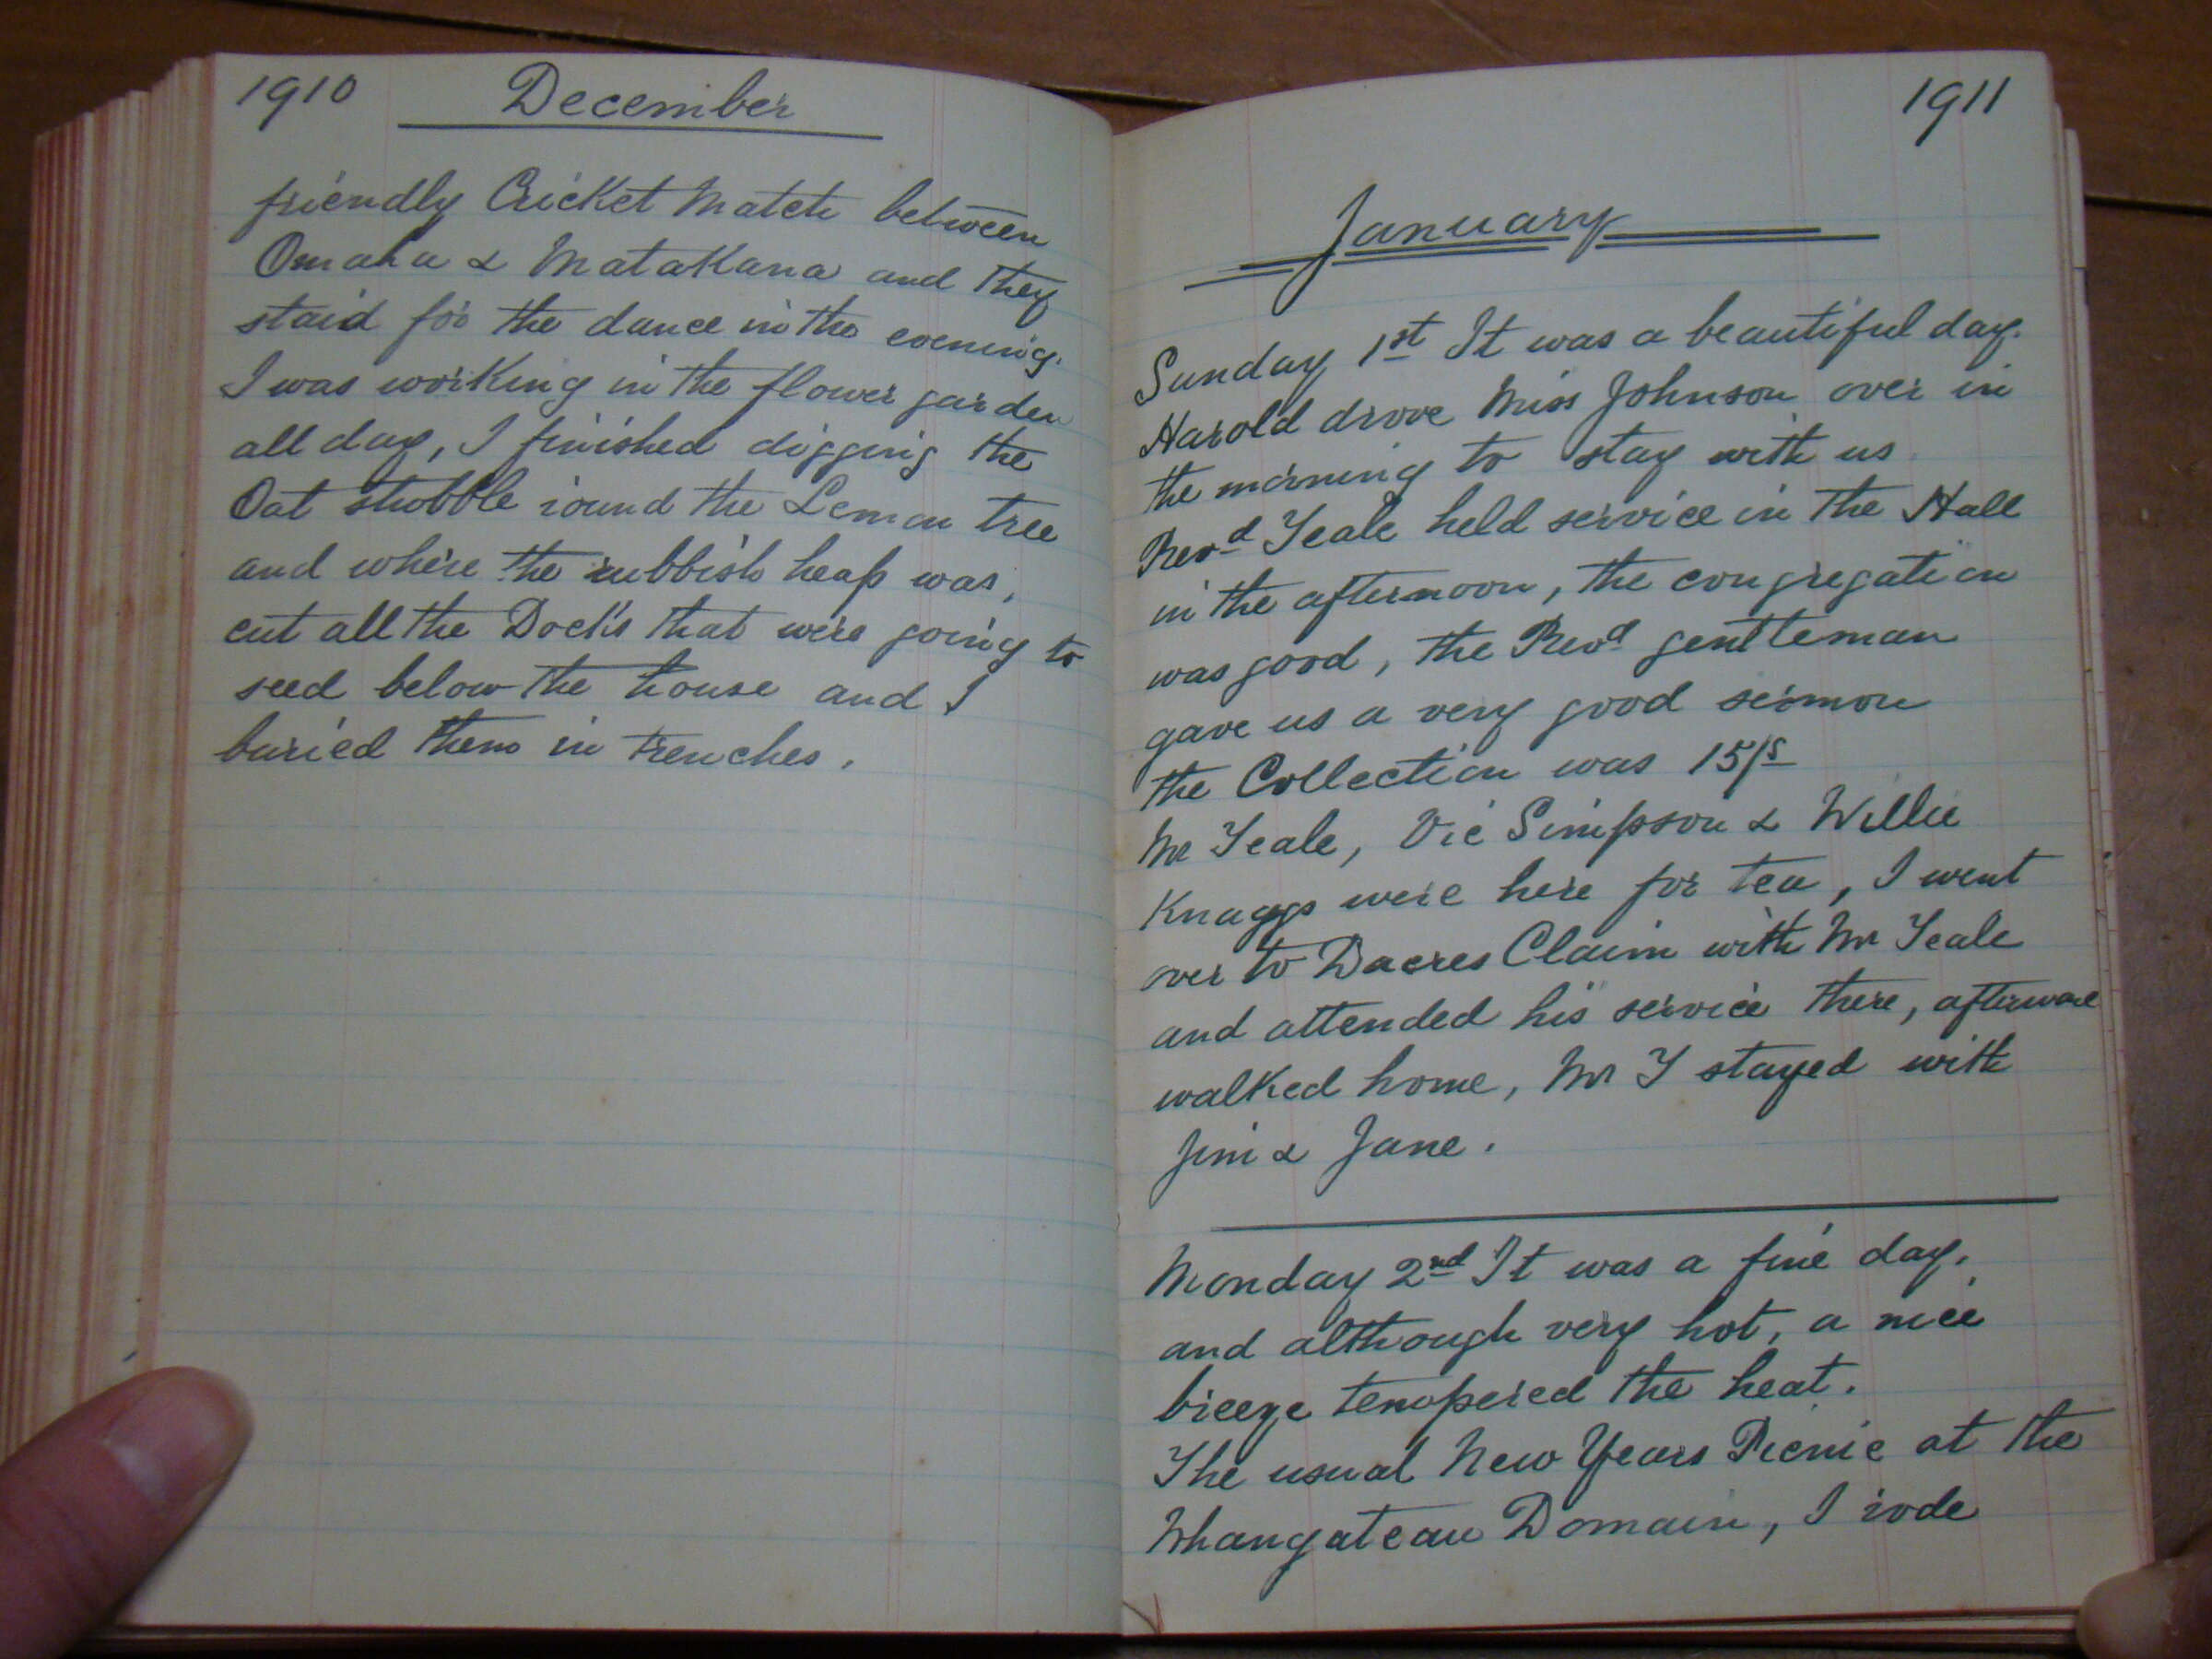 1910 December
friendly Cricket Match between
Omaha & Matakana and they
staid for the dance in the evening.
I was working in the flower garden
all day, I finished digging the
Oat stubble round the Lemon tree
and where the rubbish heap was,
cut all the Docks that were going to
seed below the house and I
buried them in trenches.
1911
January
Sunday 1st It was a beautiful day.
Harold drove Miss Johnson over in
the morning to stay with us
Revd Teale held service in the Hall
in the afternoon, the congregation
was good, the Revd gentleman
gave us a very good sermon
the Collection was 15/s
Mr Teale, Vic Simpson & Willie
Knaggs were here for tea, I went
over to Dacres Claim with Mr Teale
and attended his service there,
walked home, Mr T stayed with
Jim & Jane.
Monday 2nd It was a fine day.
and although very hot, a nice
breeze tempered the heat.
The usual New Years Picnic at the
Whangateau Domain, I rode